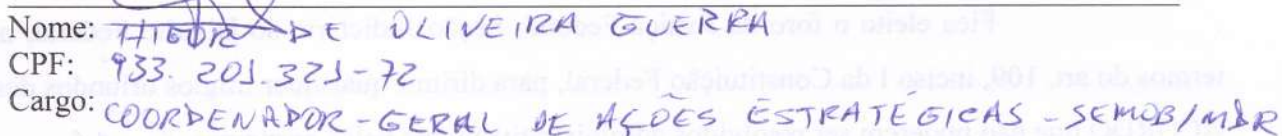 Nome: HIGOR DE OLIVEIRA GUERRA
CPF: 933.201.321-72
Cargo: COORDENADOR-GERAL DE AÇÕES ESTRATÉGICAS - SEMOB/MDR